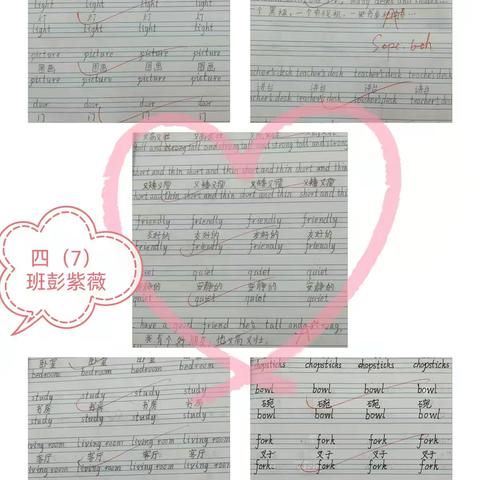 light light light light
灯 灯 灯 灯
light light light light
picture picture picture picture
图画 图画 图画 图画
picture picture picture picture
door door door door
门 门 门 门
teacher's desk teacher's desk teacher's desk
讲台 讲台 讲台
teacher's desk teacher's desk teacher's desk
又高又壮 又高又壮
tall and strong tall and strong tall and strong tall and
short and thin short and thin short and thin
又矮又瘦 又矮又瘦 又矮又瘦 又矮又瘦
short and thin short and thin short and thin
friendly friendly friendly friendly
友好的 友好的 友好的 友好的
friendly friendly friendly friendly
quiet quiet quiet quiet
安静的 安静的 安静的 安静的
quiet quiet quiet quiet
have a good friend He's tall and strong.
我有个好朋友，他又高又壮。
四（7）
班彭紫薇
卧室 卧室 卧室 卧室
bedroom bedroom bedroom bedroom
study study study study
书房 书房 书房 书房
study study study study
living room living room living room
客厅 客厅 客厅 客厅
living room living room living room living room
chopsticks chopsticks chopsticks chopsticks
bowl bowl bowl bowl
碗 碗 碗 碗
bowl bowl bowl bowl
fork fork fork fork
叉子 叉子 叉子 叉子
fork fork fork fork